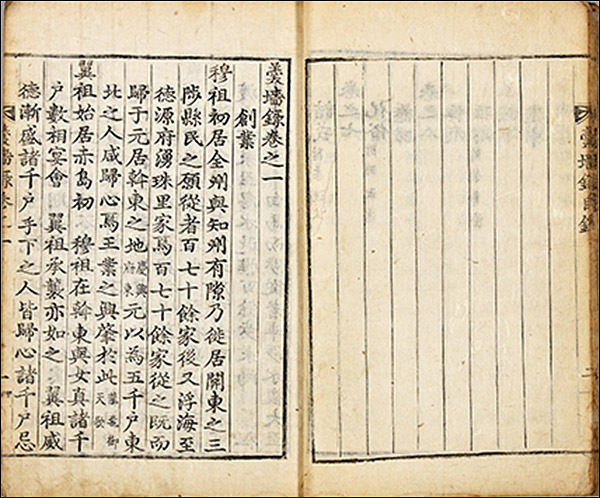 羹墻錄目錄 二
羹墻錄卷之一
創業
穆祖初居全州與知州有隙乃徙居關東之三
陟縣民之願從者百七十餘家後又浮海至
德源府湧珠里家焉百七十餘家從之既而
歸于元居斡東之地慶興府東元以爲五千戶東
北之人咸歸心焉王業之興肇於此龍飛御天歌
翼祖始居赤島初 穆祖在斡東與女真諸千
戶數相宴會 翼祖承襲亦如之 翼祖威
德漸盛諸千戶手下之人皆歸心諸千戶忌
羹墻錄卷之一 一